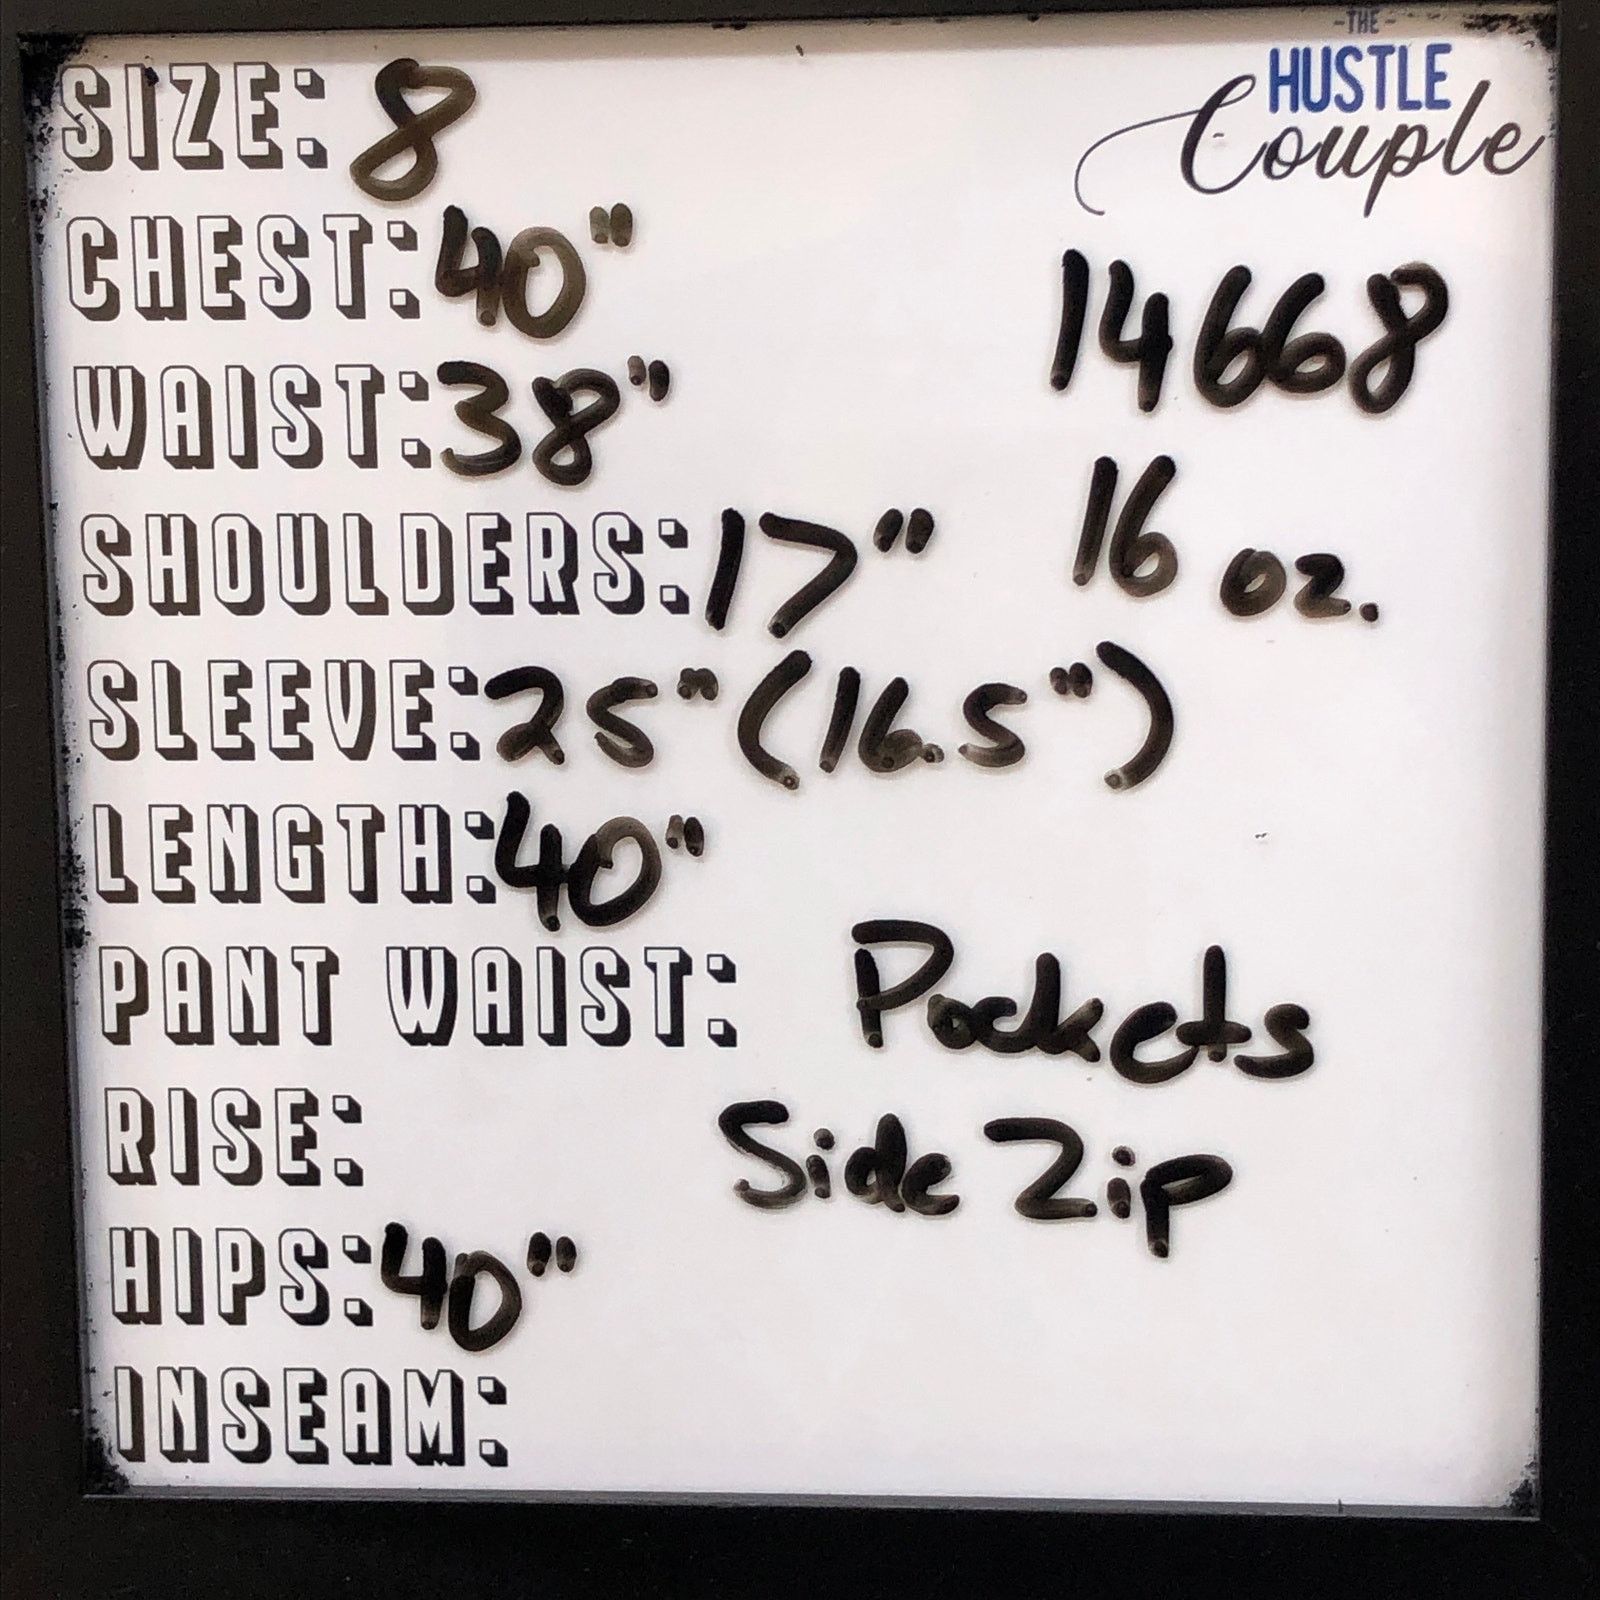 -THE-
HUSTLE
Couple
SIZE: 8
CHEST: 40"
14668
WAIST: 38"
SHOULDERS: 17"
16 oz.
SLEEVE: 25" (16.5")
LENGTH: 40"
PANT WAIST:
Pockets
RISE:
Side Zip
HIPS: 40"
INSEAM: